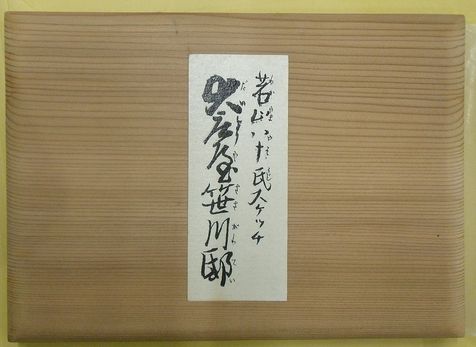 若山八十氏スケッチ
大庄屋笹川邸